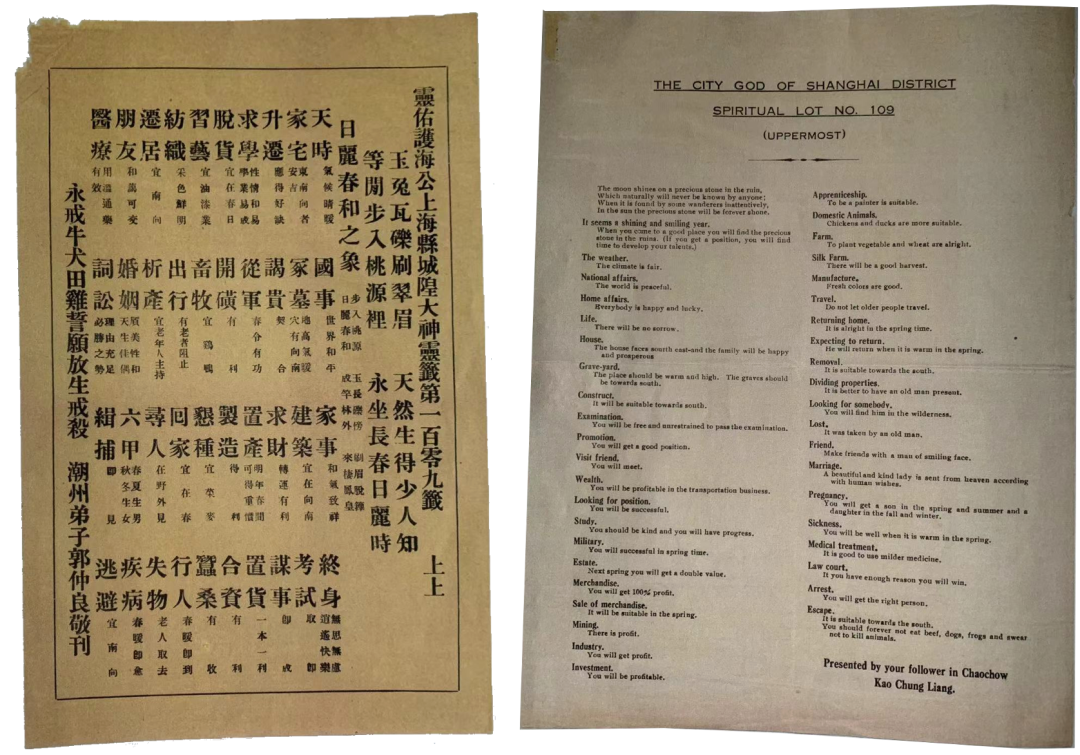 靈佑護海公上海縣城隍大神靈籤第一百零九籤 上上
玉兔瓦礫刷翠眉 天然生得少人知
等閒步入桃源裡 永坐長春日麗時
日麗春和之象 步入桃源 日麗春和 成竿林外 來淒鳳皇
天時 氣候晴暖 國事 世界和平 家事 和氣致祥 終身 無思無慮 逍遙快樂
家宅 東南向者 安吉 冢墓 地高氣暖 穴有向南 建築 宜在向南 考試 取卽
升遷 應得好缺 謁貴 契合 求財 轉運有利 謀事 卽成
求學 性情和易 學業易成 從軍 春令有功 置產 明年春間 可得重價 置貨 一本一利
脫貨 宜在春日 開礦 有利 製造 得利 合資 有利
習藝 宜油漆業 畜牧 宜鷄鴨 懇種 宜菜麥 蠶桑 有收
紡織 采色鮮明 出行 有老者阻止 回家 宜在春 行人 春暖卽到
遷居 宜南向 析產 宜老年人主持 尋人 在野外見 失物 老人取去
朋友 和藹可交 婚姻 眉美性和 天生佳偶 六甲 春夏生男 秋冬生女 疾病 春暖卽愈
醫療 用溫通藥 有效 詞訟 理由充足 必勝之勢 緝捕 卽見 逃避 宜南向
永戒牛犬田雞誓願放生戒殺 潮州弟子郭仲良敬刊
THE CITY GOD OF SHANGHAI DISTRICT
SPIRITUAL LOT NO. 109
(UPPERMOST)
The moon shines on a precious stone in the ruin,
Which naturally will never be known by anyone;
When it is found by some wanderers inattentively,
In the sun the precious stone will be forever shone.
It seems a shining and smiling year.
When you come to a good place you will find the precious
stone in the ruins. (If you get a position, you will find
time to develop your talents.)
The weather.
The climate is fair.
National affairs.
The world is peaceful.
Home affairs.
Everybody is happy and lucky.
Life.
There will be no sorrow.
House.
The house faces south east-and the family will be happy
and prosperous
Grave-yard.
The place should be warm and high. The graves should
be towards south.
Construct.
It will be suitable towards south.
Examination.
You will be free and unrestrained to pass the examination.
Promotion.
You will get a good position.
Visit friend.
You will meet.
Wealth.
You will be profitable in the transportation business.
Looking for position.
You will be successful.
Study.
You should be kind and you will have progress.
Military.
You will successful in spring time.
Estate.
Next spring you will get a double value.
Merchandise.
You will get 100% profit.
Sale of merchandise.
It will be suitable in the spring.
Mining.
There is profit.
Industry.
You will get profit.
Investment.
You will be profitable.
Apprenticeship.
To be a painter is suitable.
Domestic Animals.
Chickens and ducks are more suitable.
Farm.
To plant vegetable and wheat are alright.
Silk Farm.
There will be a good harvest.
Manufacture.
Fresh colors are good.
Travel.
Do not let older people travel.
Returning home.
It is alright in the spring time.
Expecting to return.
He will return when it is warm in the spring.
Removal.
It is suitable towards the south.
Dividing properties.
It is better to have an old man present.
Looking for somebody.
You will find him in the wilderness.
Lost.
It was taken by an old man.
Friend.
Make friends with a man of smiling face.
Marriage.
A beautiful and kind lady is sent from heaven according
with human wishes.
Pregnancy.
You will get a son in the spring and summer and a
daughter in the fall and winter.
Sickness.
You will be well when it is warm in the spring.
Medical treatment.
It is good to use milder medicine.
Law court.
If you have enough reason you will win.
Arrest.
You will get the right person.
Escape.
It is suitable towards the south.
You should forever not eat beef, dogs, frogs and swear
not to kill animals.
Presented by your follower in Chaochow
Kao Chung Liang.